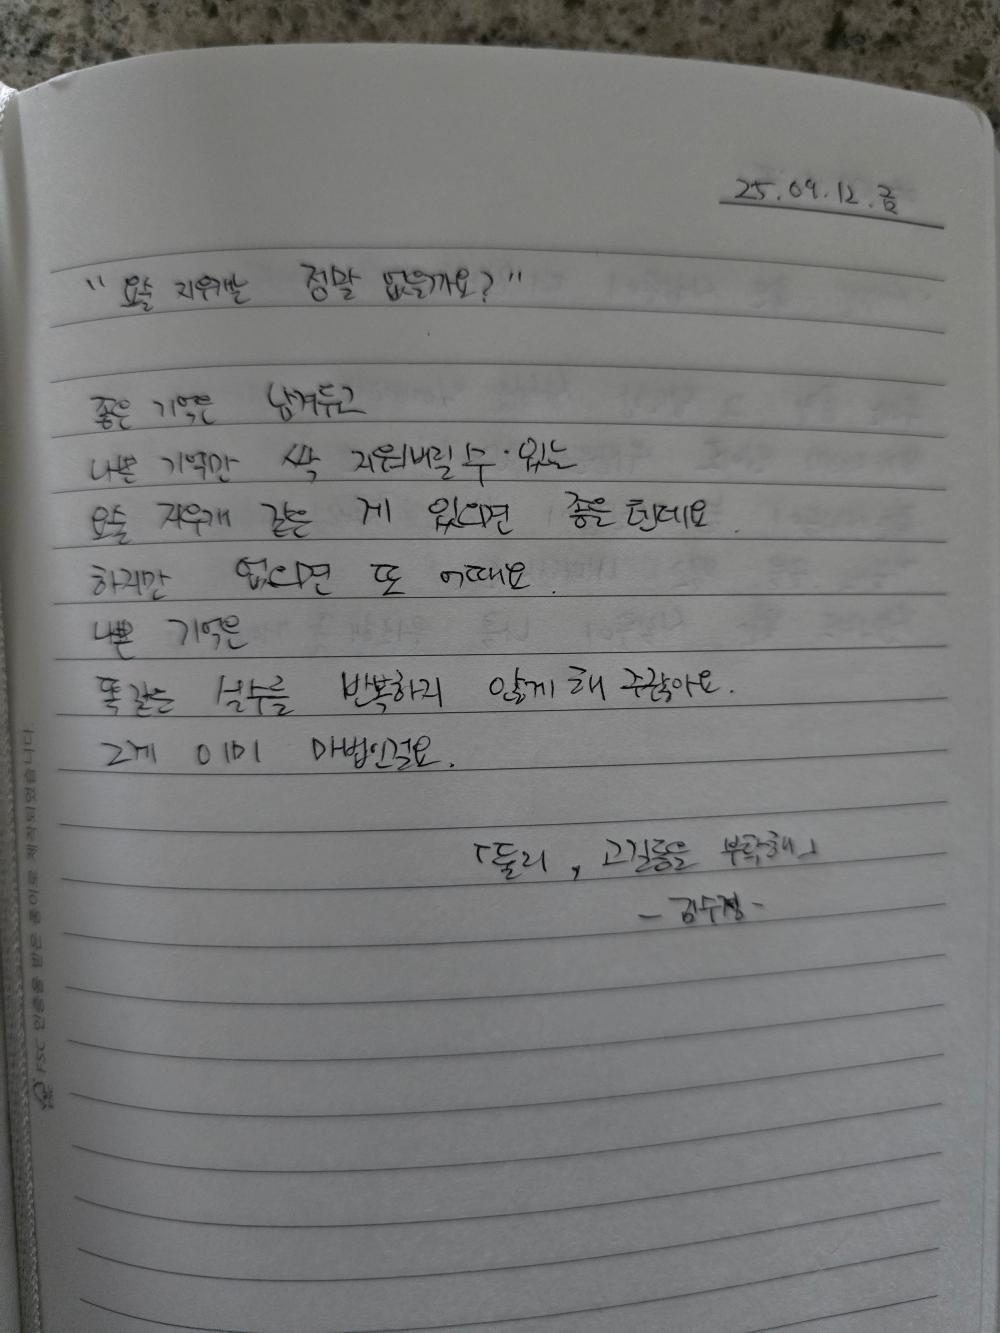 25.09.12.금
"요술 지우개는 정말 없을까요?"
좋은 기억은 남겨두고
나쁜 기억만 싹 지워버릴 수 있는
요술 지우개 같은 게 있으면 좋을 텐데요.
하지만 없으면 또 어때요.
나쁜 기억은
똑같은 실수를 반복하지 않게 해 주잖아요.
그게 이미 마법인걸요.
「둘리, 고길동을 부탁해」
- 김수정 -
FSC 인증을 받은 종이로 제작되었습니다